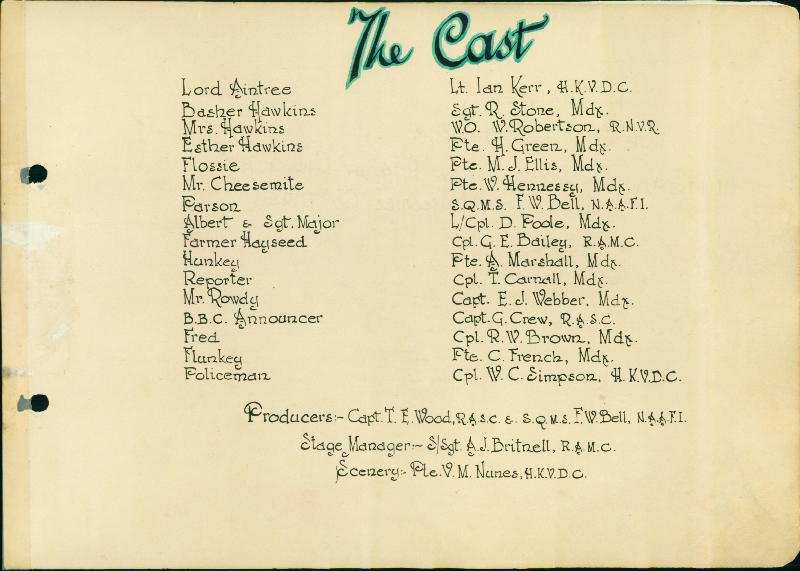 The Cast
Lord Aintree Lt. Ian Kerr, H.K.V.D.C.
Basher Hawkins Sgt. R. Stone, Mdx.
Mrs. Hawkins W.O. W. Robertson, R.N.V.R.
Esther Hawkins Pte. H. Green, Mdx.
Flossie Pte. M. J. Ellis, Mdx.
Mr. Cheesemite Pte. W. Hennessy, Mdx.
Parson S.Q.M.S. F. W. Bell, N.A.A.F.I.
Albert & Sgt. Major L/Cpl. D. Poole, Mdx.
Farmer Hayseed Cpl. G. E. Bailey, R.A.M.C.
Hunkey Pte. A. Marshall, Mdx.
Reporter Cpl. T. Carnall, Mdx.
Mr. Rowdy Capt. E. J. Webber. Mdx.
B.B.C. Announcer Capt. G. Crew, R.A.S.C.
Fred Cpl. R. W. Brown, Mdx.
Flunkey Pte. C. French, Mdx.
Policeman Cpl. W. C. Simpson, H.K.V.D.C.
Producers:- Capt. T. E. Wood, R.A.S.C. & S.Q.M.S. F. W. Bell, N.A.A.F.I.
Stage Manager:- S/Sgt. A. J. Britnell, R.A.M.C.
Scenery:- Pte. V. M. Nunes, H.K.V.D.C.